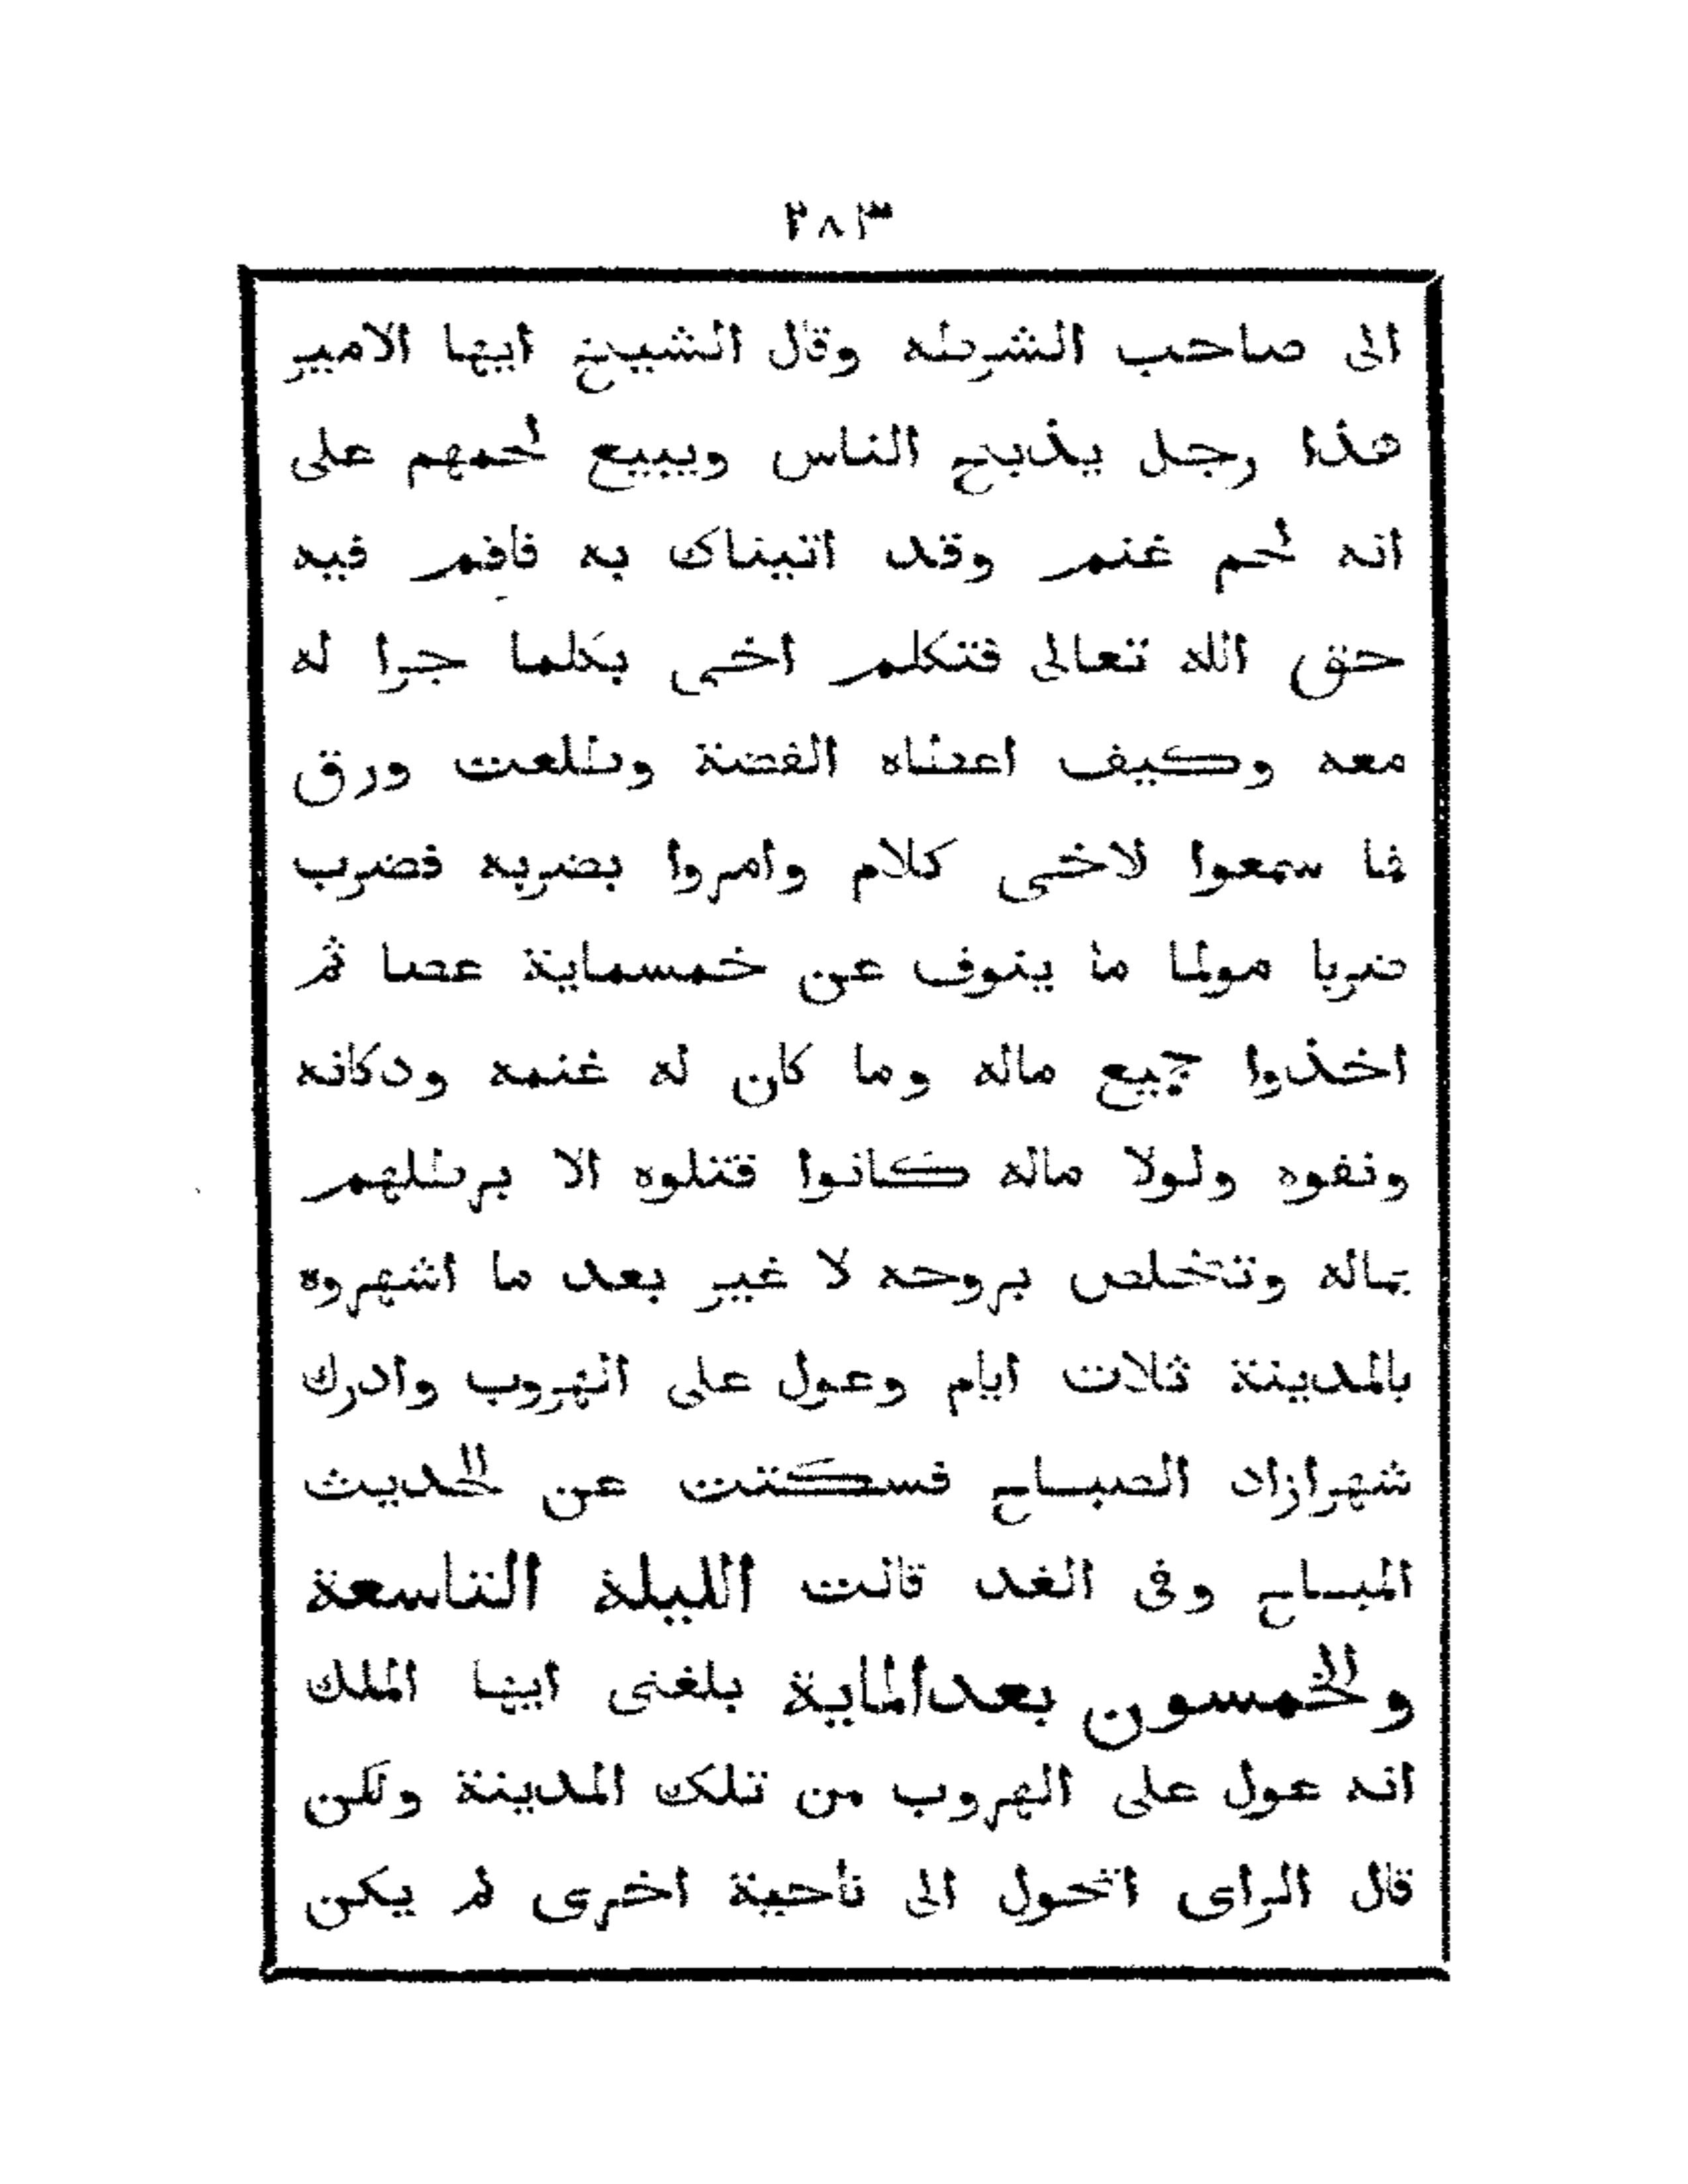 ٢٨٣
الى صاحب الشرطه وقال الشيخ ايها الامير
هذا رجل يذبح الناس ويبيع لحمهم على
انه لحم غنم وقد اتيناك به فاقم فيه
حق الله تعالى فتكلم اخى بكلما جرا له
معه وكيف اعطاه الفضة وطلعت ورق
فما سمعوا لاخى كلام وامروا بضربه فضرب
ضربا مولما ما ينوف عن خمسماية عصا ثم
اخذوا جميع ماله وما كان له غنمه ودكانه
ونفوه ولولا ماله كانوا قتلوه الا برطلهم
بماله وتخلص بروحه لا غير بعد ما اشهروه
بالمدينة ثلات ايام وعول على الهروب وادرك
شهرازاد الصباح فسكتت عن الحديث
المباح وفى الغد قالت الليلة التاسعة
والخمسون بعدالماية بلغنى ايها الملك
انه عول على الهروب من تلك المدينة ولكن
قال الراى اتحول الى ناحية اخرى لم يكن